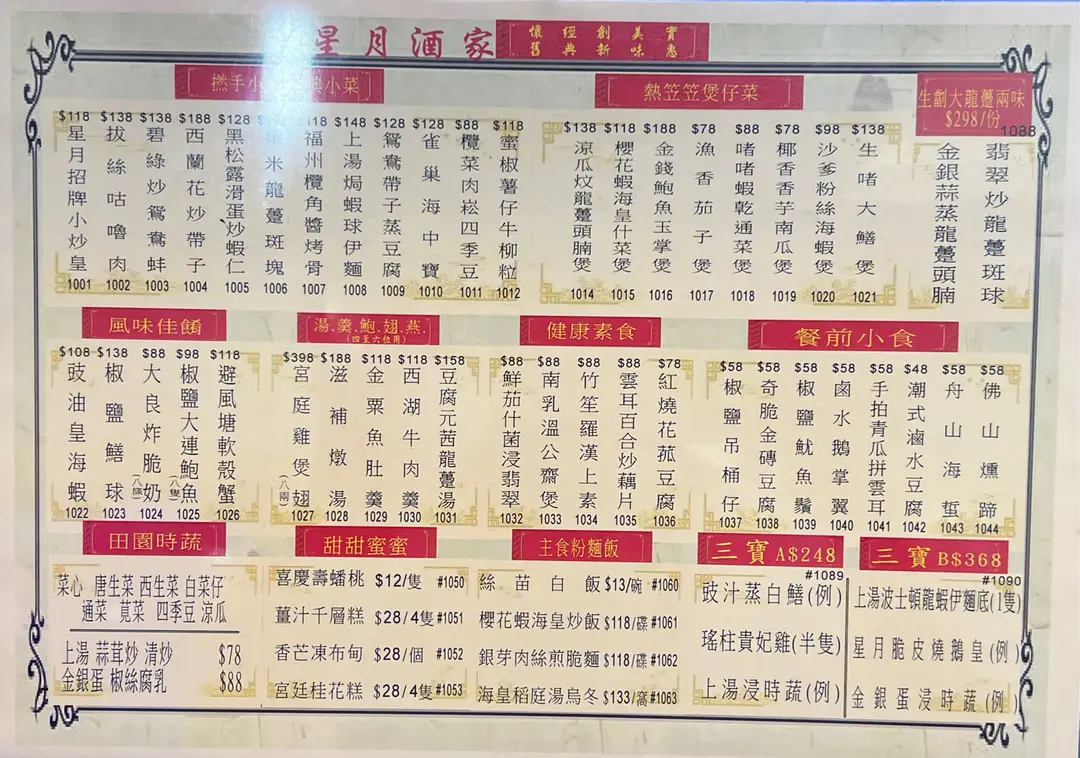 星月酒家
懷舊 經典 創新 美味 實惠
撚手小 典小菜
$118 星月招牌小炒皇 1001
$138 拔絲咕嚕肉 1002
$138 碧綠炒鴛鴦蚌 1003
$188 西蘭花炒帶子 1004
$128 黑松露滑蛋炒蝦仁 1005
米龍躉斑塊 1006
福州欖角醬烤骨 1007
$148 上湯焗蝦球伊麵 1008
$128 鴛鴦帶子蒸豆腐 1009
$128 雀巢海中寶 1010
$88 欖菜肉崧四季豆 1011
$118 蜜椒薯仔牛柳粒 1012
熱笠笠煲仔菜
$138 涼瓜炆龍躉頭腩煲 1014
$118 櫻花蝦海皇什菜煲 1015
$188 金錢鮑魚玉掌煲 1016
$78 漁香茄子煲 1017
$88 啫啫蝦乾通菜煲 1018
$78 椰香香芋南瓜煲 1019
$98 沙爹粉絲海蝦煲 1020
$138 生啫大鱔煲 1021
生劏大龍躉兩味
$298/份
1088
金銀蒜蒸龍躉頭腩
翡翠炒龍躉斑球
風味佳餚
$108 豉油皇海蝦 1022
$138 椒鹽鱔球 1023
$88 大良炸脆奶(八條) 1024
$98 椒鹽大連鮑魚(八隻) 1025
$118 避風塘軟殼蟹 1026
湯.羹.鮑.翅.燕.
(四至六位用)
$398 宮庭雞煲翅(八兩) 1027
$188 滋補燉湯 1028
$118 金粟魚肚羹 1029
$118 西湖牛肉羹 1030
$158 豆腐元茜龍躉湯 1031
健康素食
$88 鮮茄什菌浸翡翠 1032
$88 南乳溫公齋煲 1033
$88 竹笙羅漢上素 1034
$88 雲耳百合炒藕片 1035
$78 紅燒花菰豆腐 1036
餐前小食
$58 椒鹽吊桶仔 1037
$58 奇脆金磚豆腐 1038
$58 椒鹽魷魚鬚 1039
$58 鹵水鵝掌翼 1040
$58 手拍青瓜拼雲耳 1041
$48 潮式滷水豆腐 1042
$58 舟山海蜇 1043
$58 佛山燻蹄 1044
田園時蔬
菜心 唐生菜 西生菜 白菜仔
通菜 莧菜 四季豆 涼瓜
上湯 蒜茸炒 清炒 $78
金銀蛋 椒絲腐乳 $88
甜甜蜜蜜
喜慶壽蟠桃 $12/隻 #1050
薑汁千層糕 $28/4隻 #1051
香芒凍布甸 $28/個 #1052
宮廷桂花糕 $28/4隻 #1053
主食粉麵飯
絲苗白飯 $13/碗 #1060
櫻花蝦海皇炒飯 $118/碟 #1061
銀芽肉絲煎脆麵 $118/碟 #1062
海皇稻庭湯烏冬 $133/窩 #1063
三寶A$248
#1089
豉汁蒸白鱔(例)
瑤柱貴妃雞(半隻)
上湯浸時蔬(例)
三寶B$368
#1090
上湯波士頓龍蝦伊麵底(1隻)
星月脆皮燒鵝皇(例)
金銀蛋浸時蔬(例)